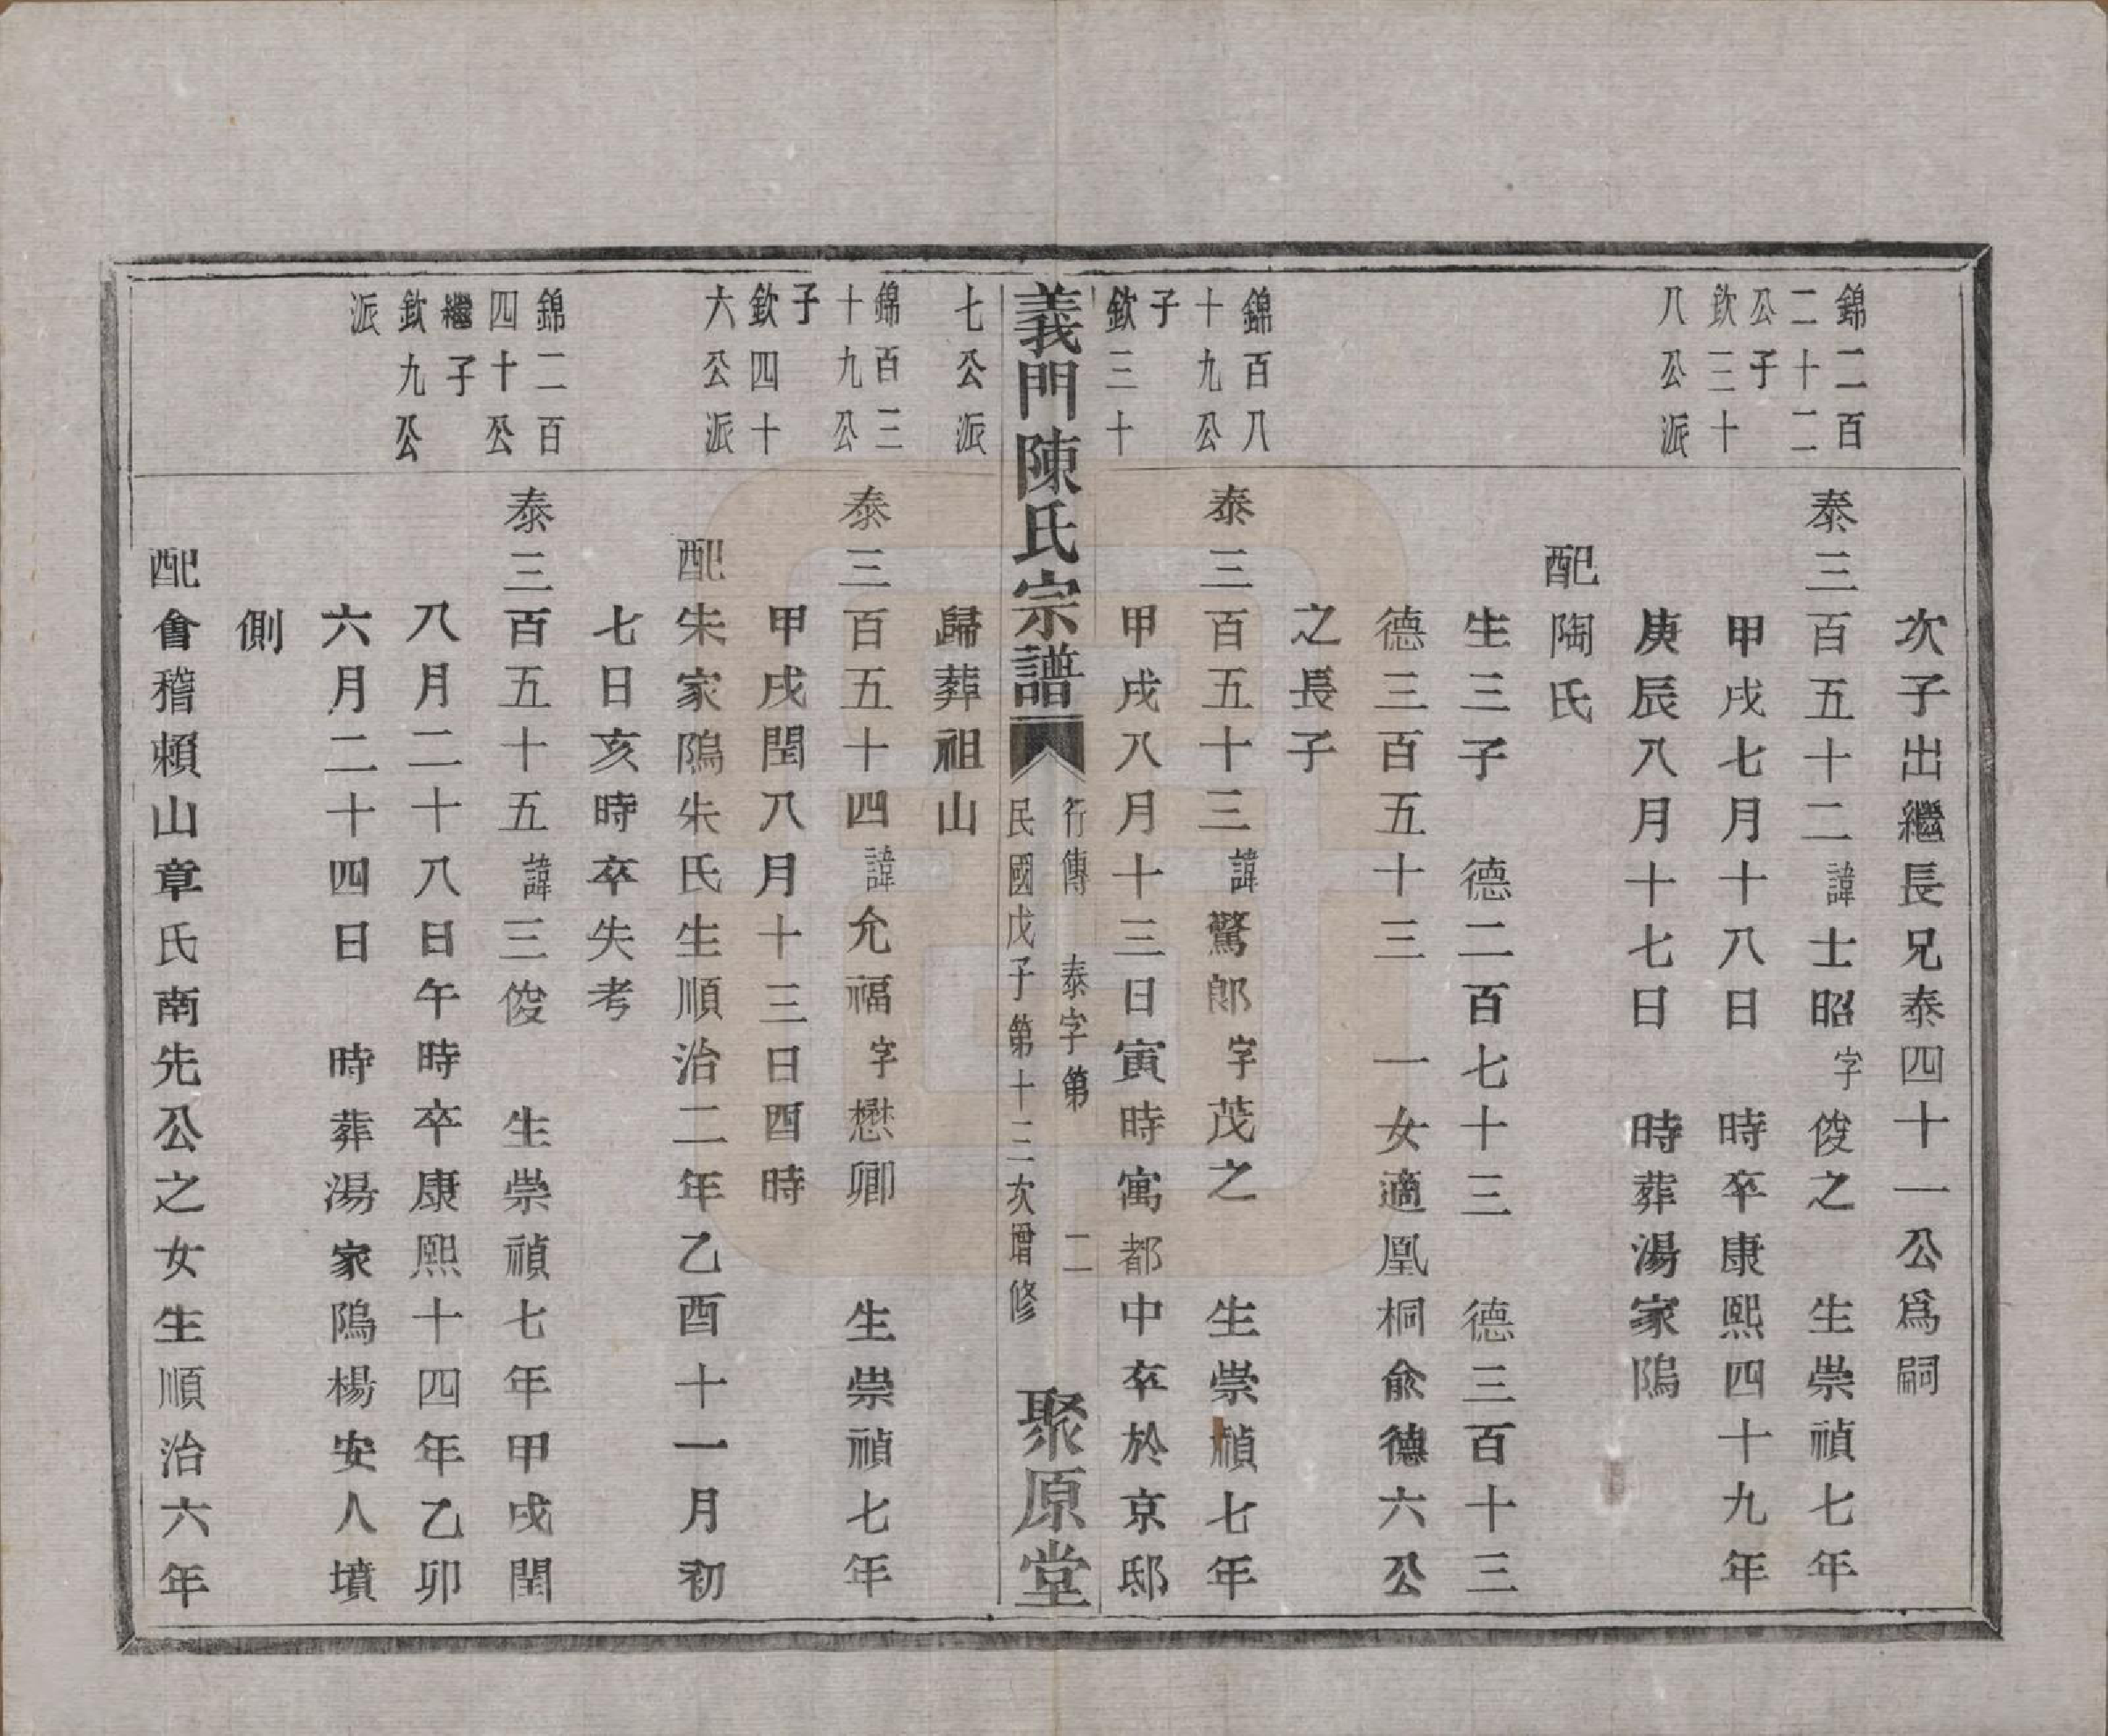 次子出繼長兄泰四十一公爲嗣
錦二百
二十二
公子
欽三十
八公派
泰三百五十二諱士昭字俊之　生崇禎七年
甲戌七月十八日　時卒康熙四十九年
庚辰八月十七日　時葬湯家隖
配陶氏
生三子　德二百七十三　德三百十三
德三百五十三　一女適凰桐俞德六公
之長子
錦百八
十九公
子
欽三十
七公派
泰三百五十三諱驚郞字茂之　生崇禎七年
甲戌八月十三日寅時寓都中卒於京邸
義門陳氏宗譜
行傳　泰字第　二
民國戊子第十三次增修
聚原堂
歸葬祖山
錦百三
十九公
子
欽四十
六公派
泰三百五十四諱允福字懋卿　生崇禎七年
甲戌閏八月十三日酉時
配朱家隖朱氏生順治二年乙酉十一月初
七日亥時卒失考
錦二百
四十公
繼子
欽九公
派
泰三百五十五諱三俊　生崇禎七年甲戌閏
八月二十八日午時卒康熙十四年乙卯
六月二十四日　時葬湯家隖楊安人墳
側
配會稽賴山章氏南先公之女生順治六年